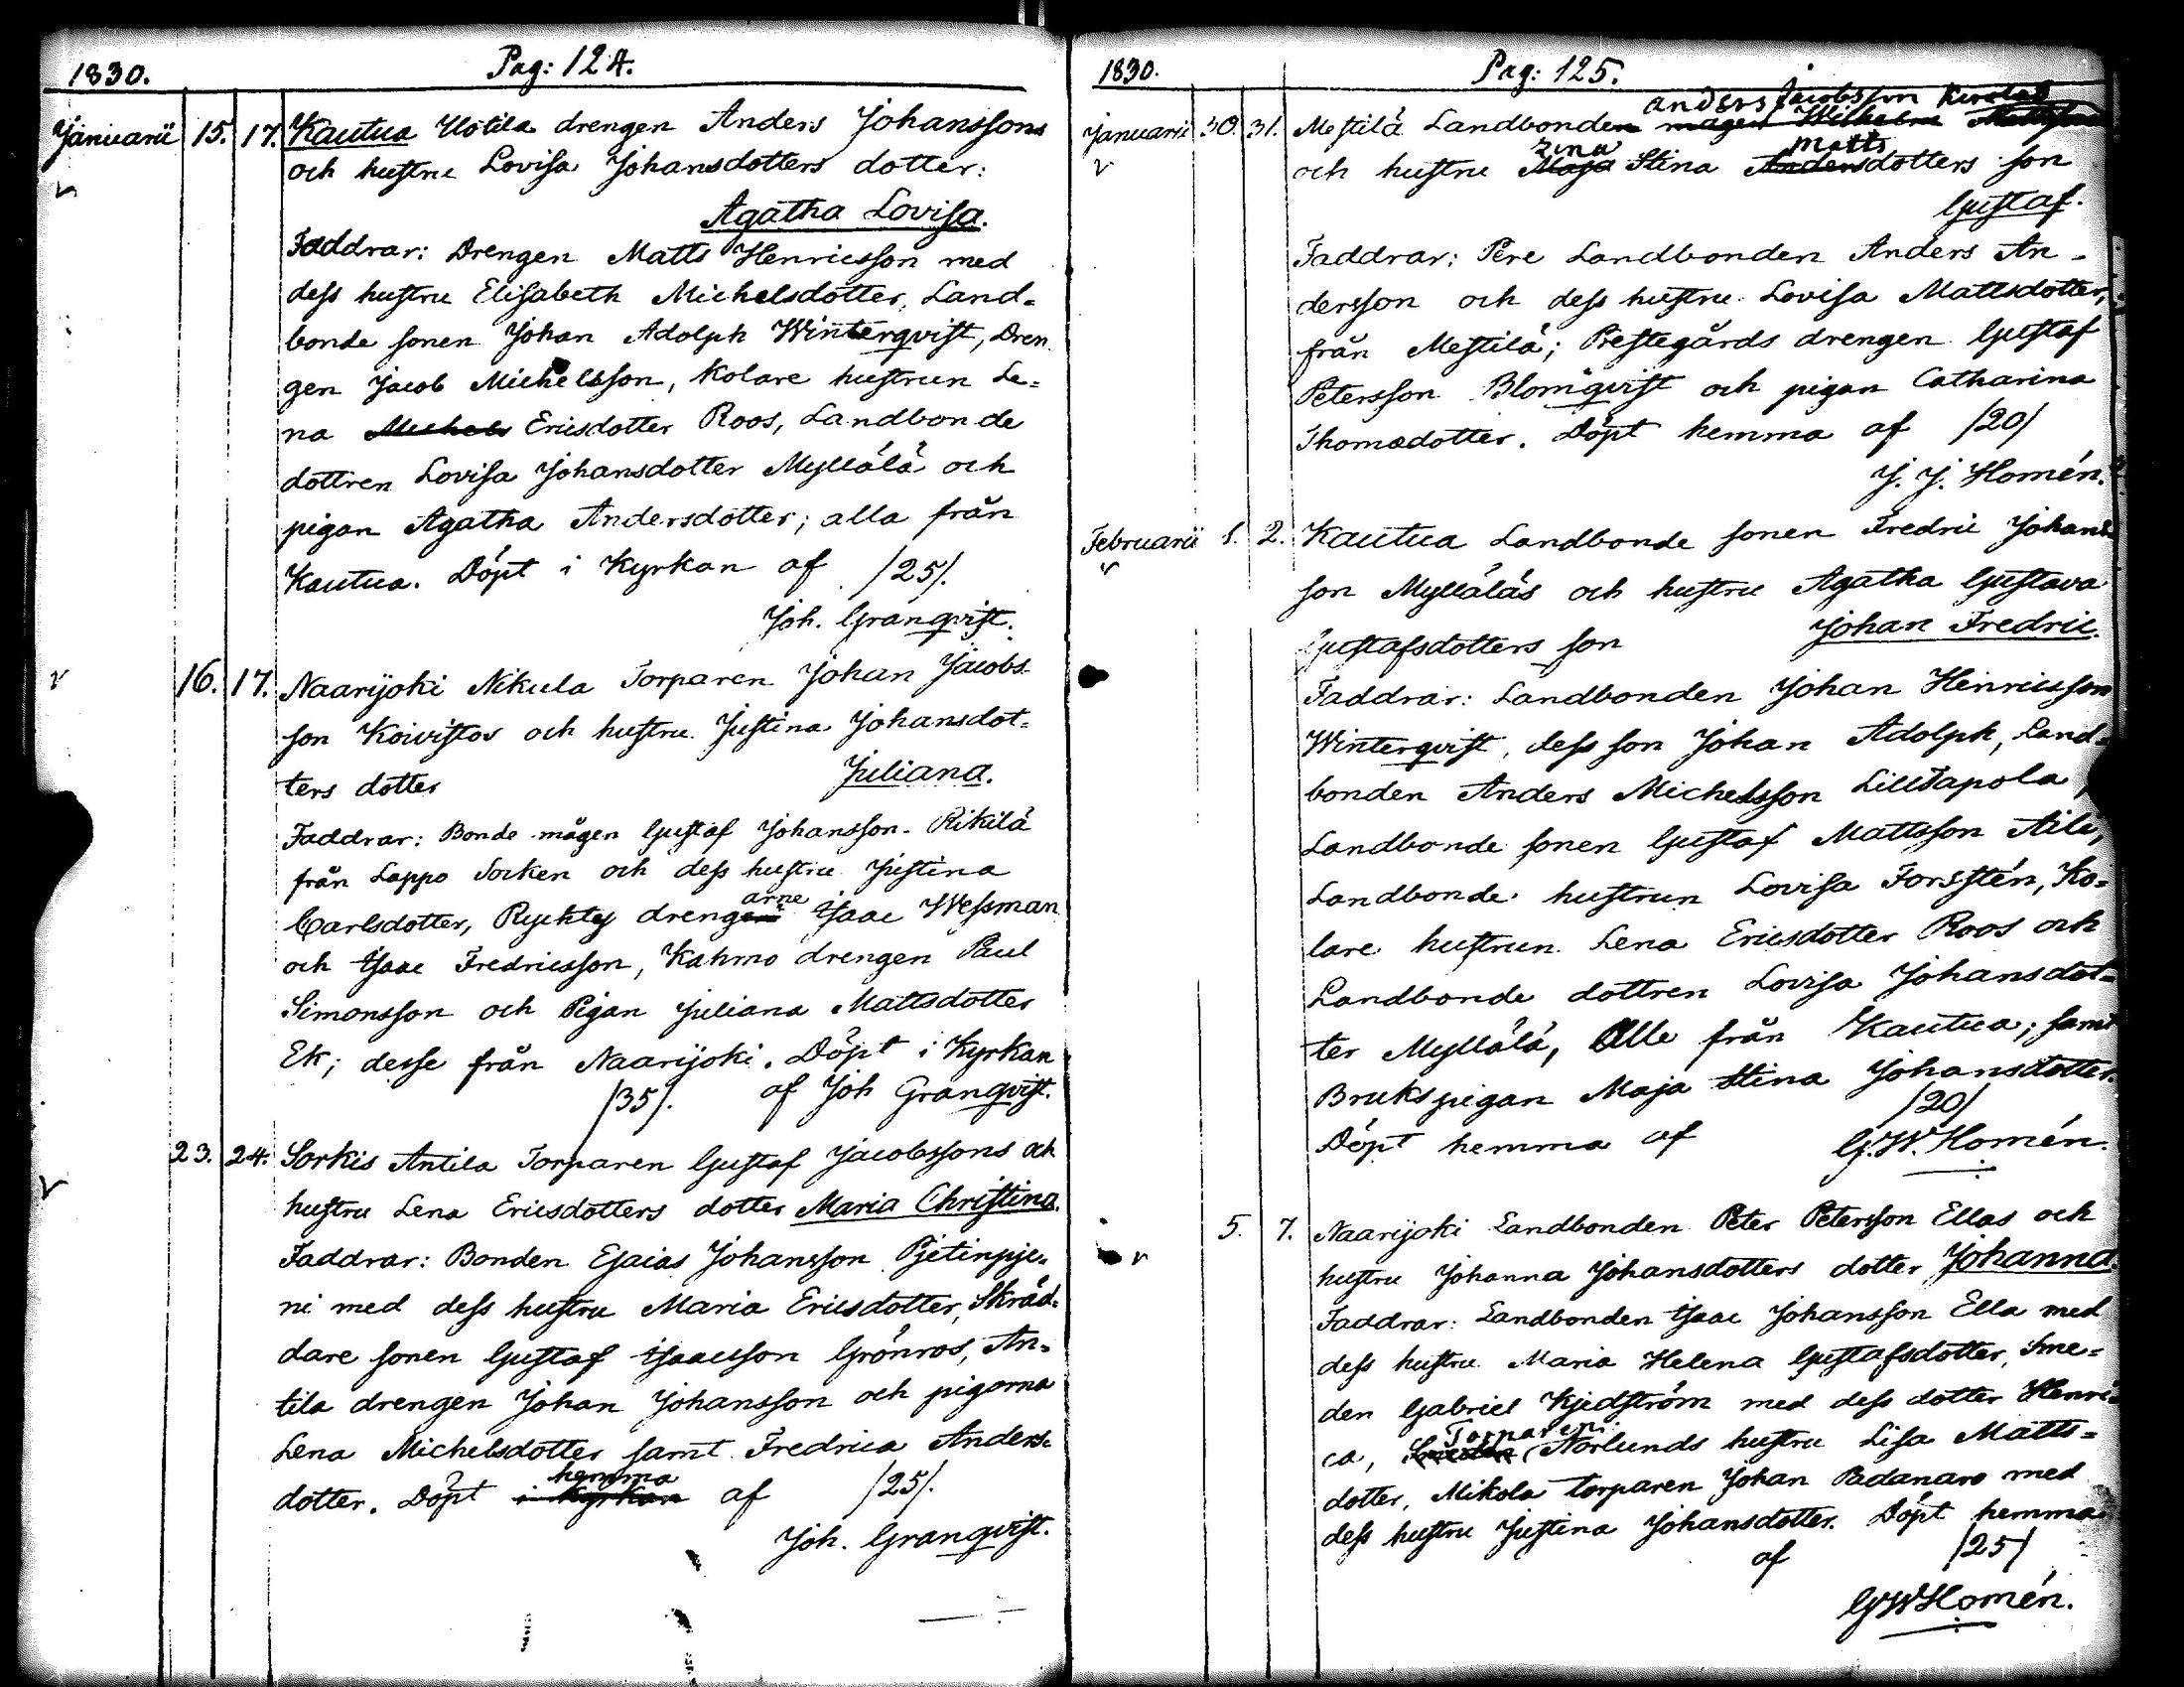 1830.
Pag: 124.
Januarii 15. 17. Kautua Uotila drengen Anders Johanssons
och hustru Lovisa Johansdotters dotter:
Agatha Lovisa.
Faddrar: Drengen Matts Henricsson med
dess hustru Elisabeth Michelsdotter, Land=
bonde sonen Johan Adolph Winterqvist, Dren
gen Jacob Michelsson, Kolare hustrun Le=
na Michels Ericsdotter Roos, Landbonde
dottren Lovisa Johansdotter Myllälä och
pigan Agatha Andersdotter; alla från
Kautua. Döpt i Kyrkan af /25/.
Joh. Granqvist.
16. 17. Naarijoki Nikula Torparen Johan Jacobs
son Koivistos och hustru Justina Johansdot=
ters dotter Juliana.
Faddrar: Bonde mågen Gustaf Johansson Rikilä
från Lappo Socken och dess hustru Justina
arne
Carlsdotter, Ryckty drengen Isaac Wessman
och Isaac Fredricsson, Kahmo drengen Paul
Simonsson och Pigan Juliana Mattsdotter
Ek; desse från Naarijoki. Döpt i Kyrkan
/35/. af Joh Granqvist.
23. 24. Sorkis Antila Torparen Gustaf Jacobssons och
hustru Lena Ericsdotters dotter Maria Christina.
Faddrar: Bonden Esaias Johansson Pjetinpje=
ni med dess hustru Maria Ericsdotter, Skräd=
dare sonen Gustaf Isaacsson Grönros, An=
tila drengen Johan Johansson och pigorna
Lena Michelsdotter samt Fredrica Anders=
hemma
dotter. Döpt i Kyrkan af /25/.
Joh. Granqvist.
1830.
Pag: 125.
anders Jacobsson
Januarii 30. 31. Mestilä Landbonden mågen Wilhelm
Zena Matts
och hustru Maja Stina Andersdotters son
Gustaf.
Faddrar: Pere Landbonden Anders An=
dersson och dess hustru Lovisa Mattsdotter,
från Mestilä; Prestegårds drengen Gustaf
Petersson Blomqvist och pigan Catharina
Thomædotter. Döpt hemma af /20/
J. J. Homén.
Februarii 1. 2. Kautua Landbonde sonen Fredric Johans
son Mylläläs och hustru Agatha Gustava
Gustafsdotters son Johan Fredric.
Faddrar: Landbonden Johan Henricsson
Winterqvist, dess son Johan Adolph, Land=
bonden Anders Michelsson Lilltapola,
Landbonde sonen Gustaf Mattsson Aila,
Landbonde hustrun Lovisa Forsstén, Ko=
lare hustrun Lena Ericsdotter Roos och
Landbonde dottren Lovisa Johansdot=
ter Myllälä, Alle från Kautua; samt
Bruks pigan Maja Stina Johansdotter.
/20/
Döpt hemma af G.W. Homén.
5. 7. Naarijoki Landbonden Peter Petersson Ellas och
hustru Johanna Johansdotters dotter Johanna.
Faddrar: Landbonden Isaac Johansson Ella med
dess hustru Maria Helena Gustafsdotter, Sme=
den Gabriel Kjedström med dess dotter Henri=
Torparens
ca, Norlunds hustru Lisa Matts=
dotter, Mikola torparen Johan Padanaro med
dess hustru Justina Johansdotter. Döpt hemma
af /25/
GWHomén.